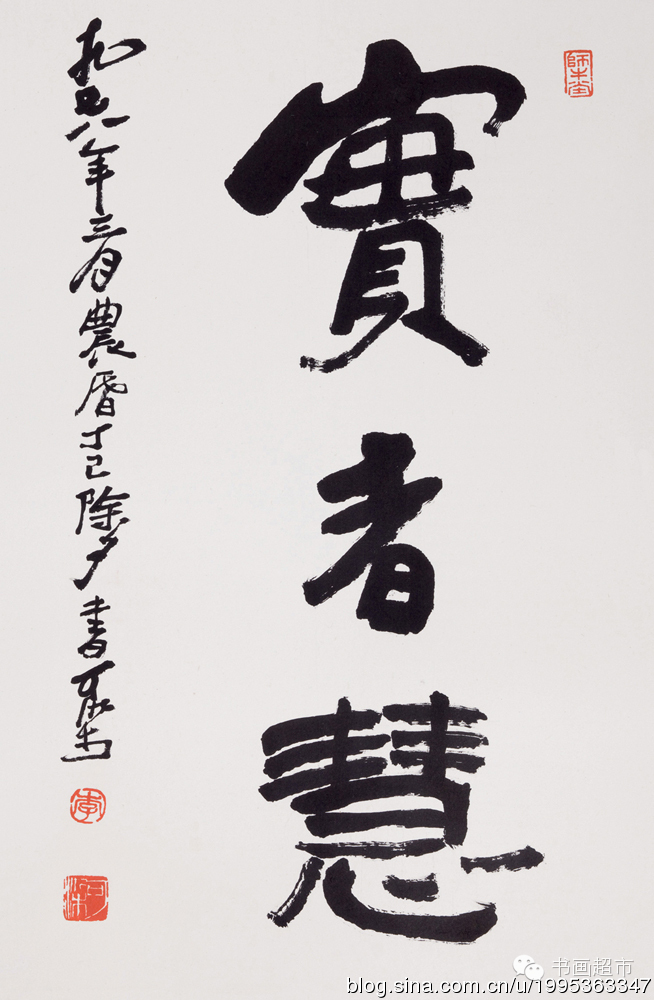 師牛堂
實者慧
一九七八年三月農曆丁巳除夕書可染
李
可染
书画超市
blog.sina.com.cn/u/1995363347